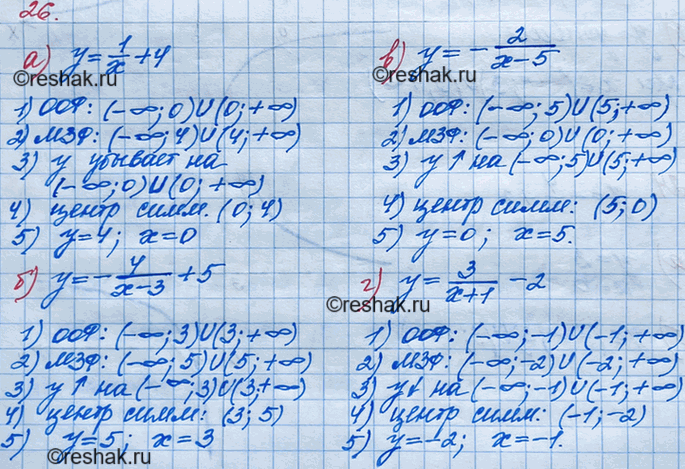 26.
а) y = 1/x + 4
reshak.ru
1) ООФ: (-∞; 0)∪(0; +∞)
2) МЗФ: (-∞; 4)∪(4; +∞)
3) y убывает на
(-∞; 0)∪(0; +∞)
4) центр симм. (0; 4)
5) y = 4; x = 0
б) y = - 4/(x-3) + 5
1) ООФ: (-∞; 3)∪(3; +∞)
2) МЗФ: (-∞; 5)∪(5; +∞)
3) y ↑ на (-∞; 3)∪(3; +∞)
4) центр симм: (3; 5)
5) y = 5; x = 3
reshak.ru
в) y = - 2/(x-5)
reshak.ru
1) ООФ: (-∞; 5)∪(5; +∞)
2) МЗФ: (-∞; 0)∪(0; +∞)
3) y ↑ на (-∞; 5)∪(5; +∞)
4) центр симм: (5; 0)
5) y = 0; x = 5.
г) y = 3/(x+1) - 2
reshak.ru
1) ООФ: (-∞; -1)∪(-1; +∞)
2) МЗФ: (-∞; -2)∪(-2; +∞)
3) y↓ на (-∞; -1)∪(-1; +∞)
4) центр симм: (-1; -2)
5) y = -2; x = -1.